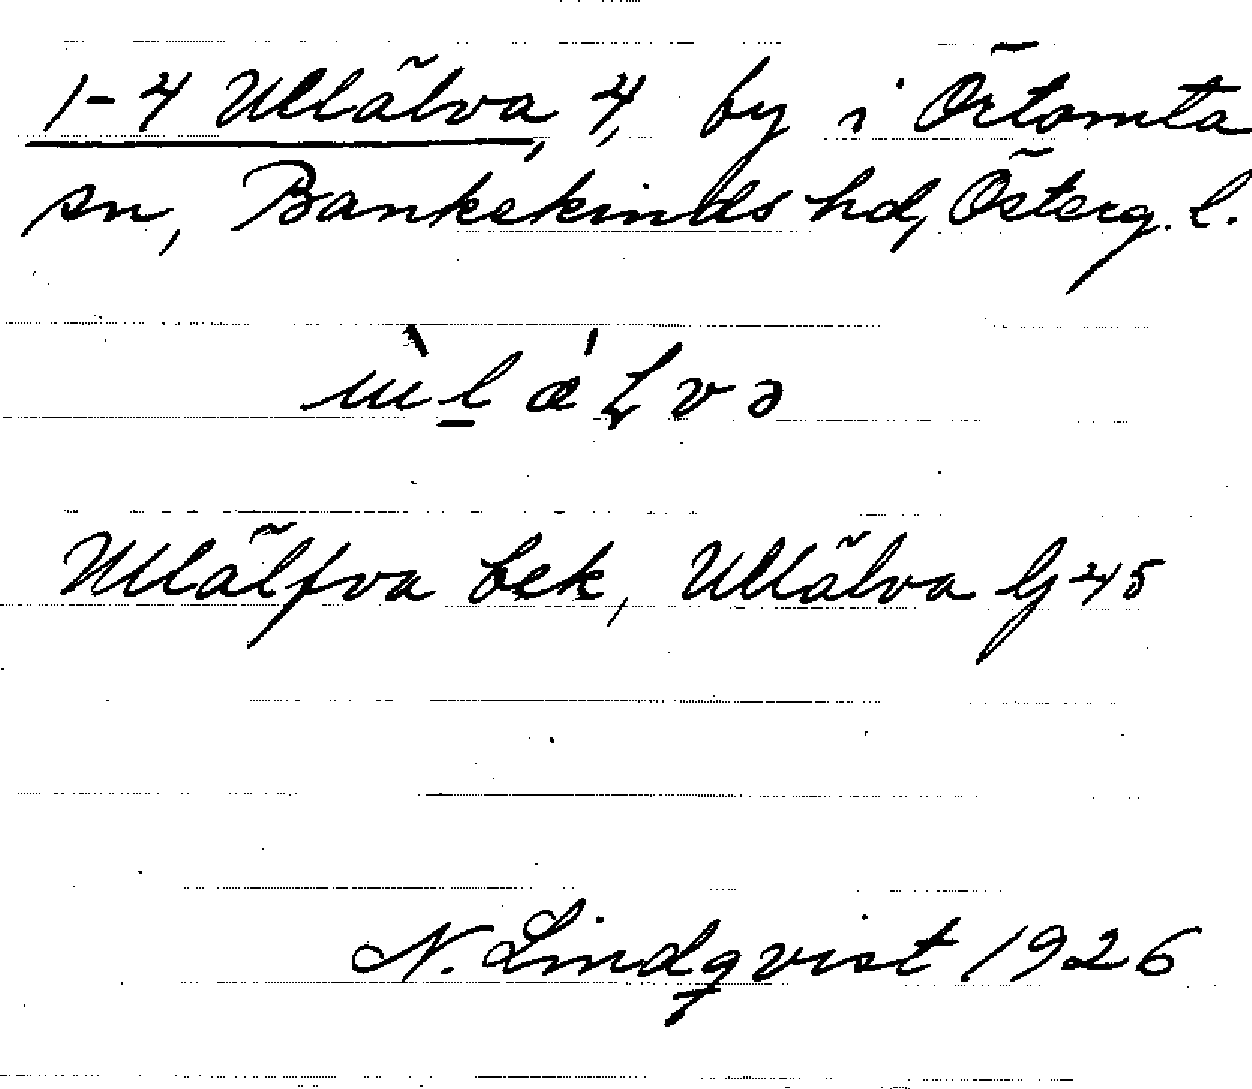 1-4 Ullälva, 4, by i Örtomta
sn, Bankekinds hd, Österg. l.
Ullälfva bek, Ullälva Gj 45
N. Lindqvist 1926